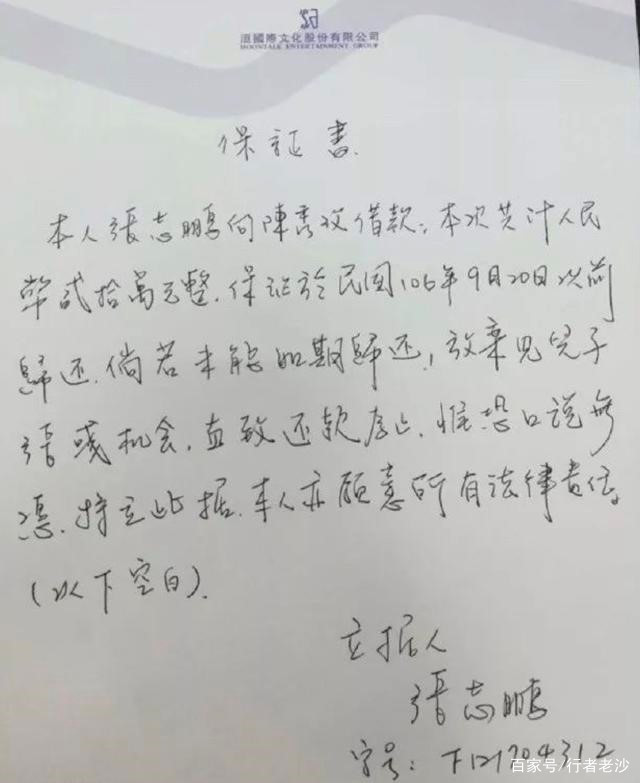 洹國際文化股份有限公司
MOONTALE ENTERTAINMENT GROUP
保证書.
本人張志鵬向陳秀玫借款,本次共计人民
幣貳拾萬元整.保证於民国106年9月20日以前
歸还.倘若未能如期歸还,放弃见兒子
張彧机会,直致还款為止.惟恐口说無
憑.特立此据.本人亦願意所有法律责任.
(以下空白).
立据人
張志鵬
字号:F121704312
百家号/行者老沙